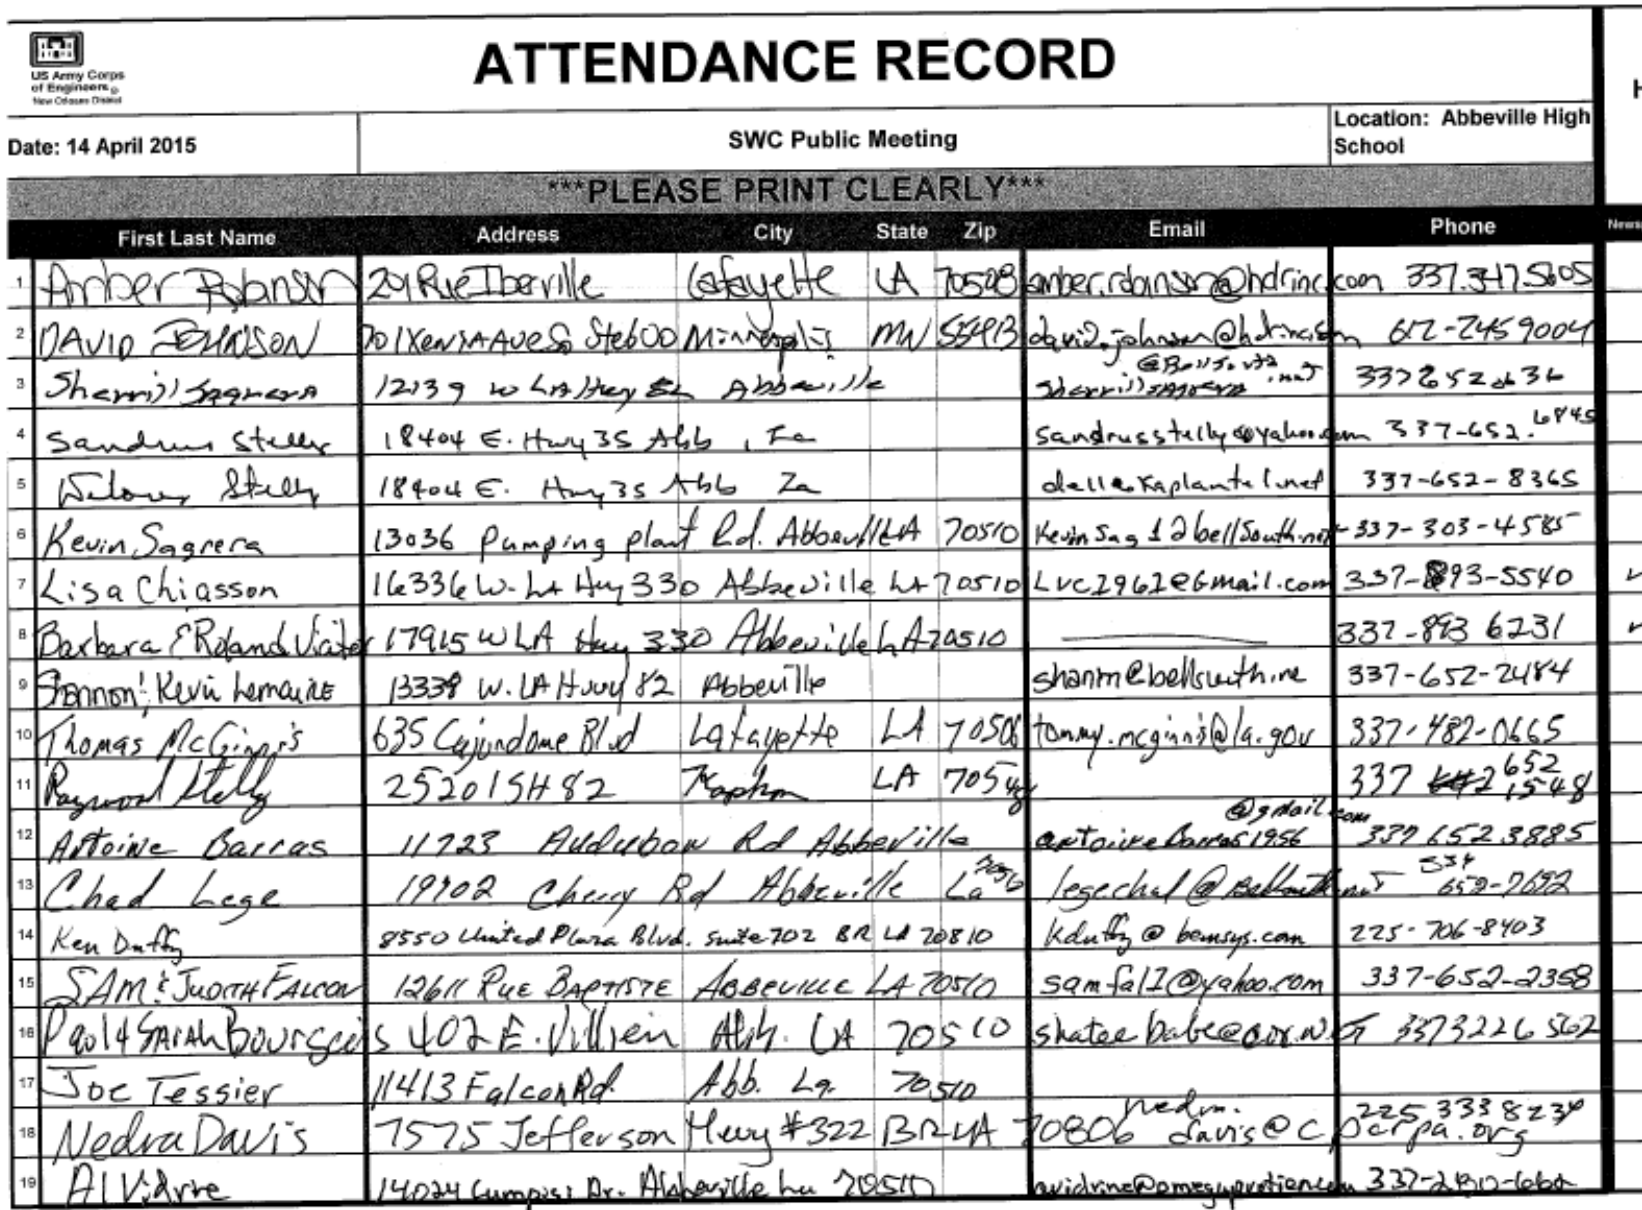 US Army Corps
of Engineers
New Orleans District
ATTENDANCE RECORD
H
Date: 14 April 2015 SWC Public Meeting Location: Abbeville High
School
***PLEASE PRINT CLEARLY***
First Last Name Address City State Zip Email Phone
1 Amber Robinson 201 Rue Iberville Lafayette LA 70508 amber.robinson@hdrinc.com 337.347.5605
2 DAVID JOHNSON 701 Xenia Ave S Ste600 Minneapolis MN david.johnson@hdrinc.com 612-245 9004
3 Sherrill Sagrera 12139 W LA Hwy Abbeville
4 Stelly 18404 E. Hwy 35 Abb sandrusstelly@yahoo.com 337-652.6845
5 Stelly 18404 E. Hwy 35 Abb 337-652-8365
6 Kevin Sagrera 13036 Pumping plant Rd. Abbeville LA 70510 337-303-4585
7 Lisa Chiasson 16336 W. LA Hwy 330 Abbeville LA 70510 Lvc1961@Gmail.com 337-893-5540
8 Barbara & Roland Viator 17915 W LA Hwy 330 Abbeville LA 70510 337-893 6231
9 Shannon & Kevin Lemaire 13338 W. LA Hwy 82 Abbeville 337-652-2484
10 Thomas McGinnis 635 Cajundome Blvd Lafayette LA 70506 tommy.mcginnis@la.gov 337-482-0665
11 Raywood Stelly 25201 SH 82 Kaplan LA 70548 337 652 1548
12 Antoine Barras 11723 Audubon Rd Abbeville antoinebarras1956@gmail.com 337 652 3885
13 Chad Lege 19902 Cherry Rd Abbeville La 652-7692
14 Ken Duffy 8550 United Plaza Blvd. Suite 702 BR LA 70810 kduffy@bemsys.com 225-706-8403
15 SAM & JUDITH FALCON 12611 RUE BAPTISTE ABBEVILLE LA 70510 samfal1@yahoo.com 337-652-2358
16 Paul & SARAH Bourgeois 402 E. Villien Abb. LA 70510 3373226562
17 Joe Tessier 11413 Falcon Rd. Abb. La. 70510
18 Nedra Davis 7575 Jefferson Hwy #322 BR LA 70806 225 333 8234
19 Al Vidrine 14024 Dr. Abbeville La 70510